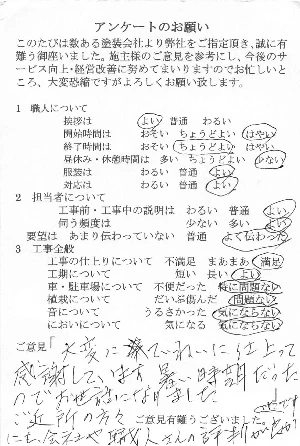 アンケートのお願い
このたびは数ある塗装会社より弊社をご指定頂き、誠に有
難う御座いました。施主様のご意見を参考にし、今後のサ
ービス向上・経営改善に努めてまいりますのでお忙しいと
ころ、大変恐縮ですがよろしくお願い致します。
1 職人について
挨拶は よい 普通 わるい
開始時間は おそい ちょうどよい はやい
終了時間は おそい ちょうどよい はやい
昼休み・休憩時間は 多い ちょうどよい 少ない
服装は わるい 普通 よい
対応は わるい 普通 よい
2 担当者について
工事前・工事中の説明は わるい 普通 よい
伺う頻度は 少ない 多い よい
要望は あまり伝わっていない 普通 よく伝わった
3 工事全般
工事の仕上りについて 不満足 まあまあ 満足
工期について 短い 長い よい
車・駐車場について 不便だった 特に問題ない
植栽について だいぶ傷んだ 問題ない
音について うるさかった 気にならない
においについて 気になる 気にならない
ご意見「大変に ていねいに仕上って
感謝しています 暑い時期だった
のでお世話になりました
ご近所の方々 ご意見有難うございました。
にも 会社や職人さんの評判